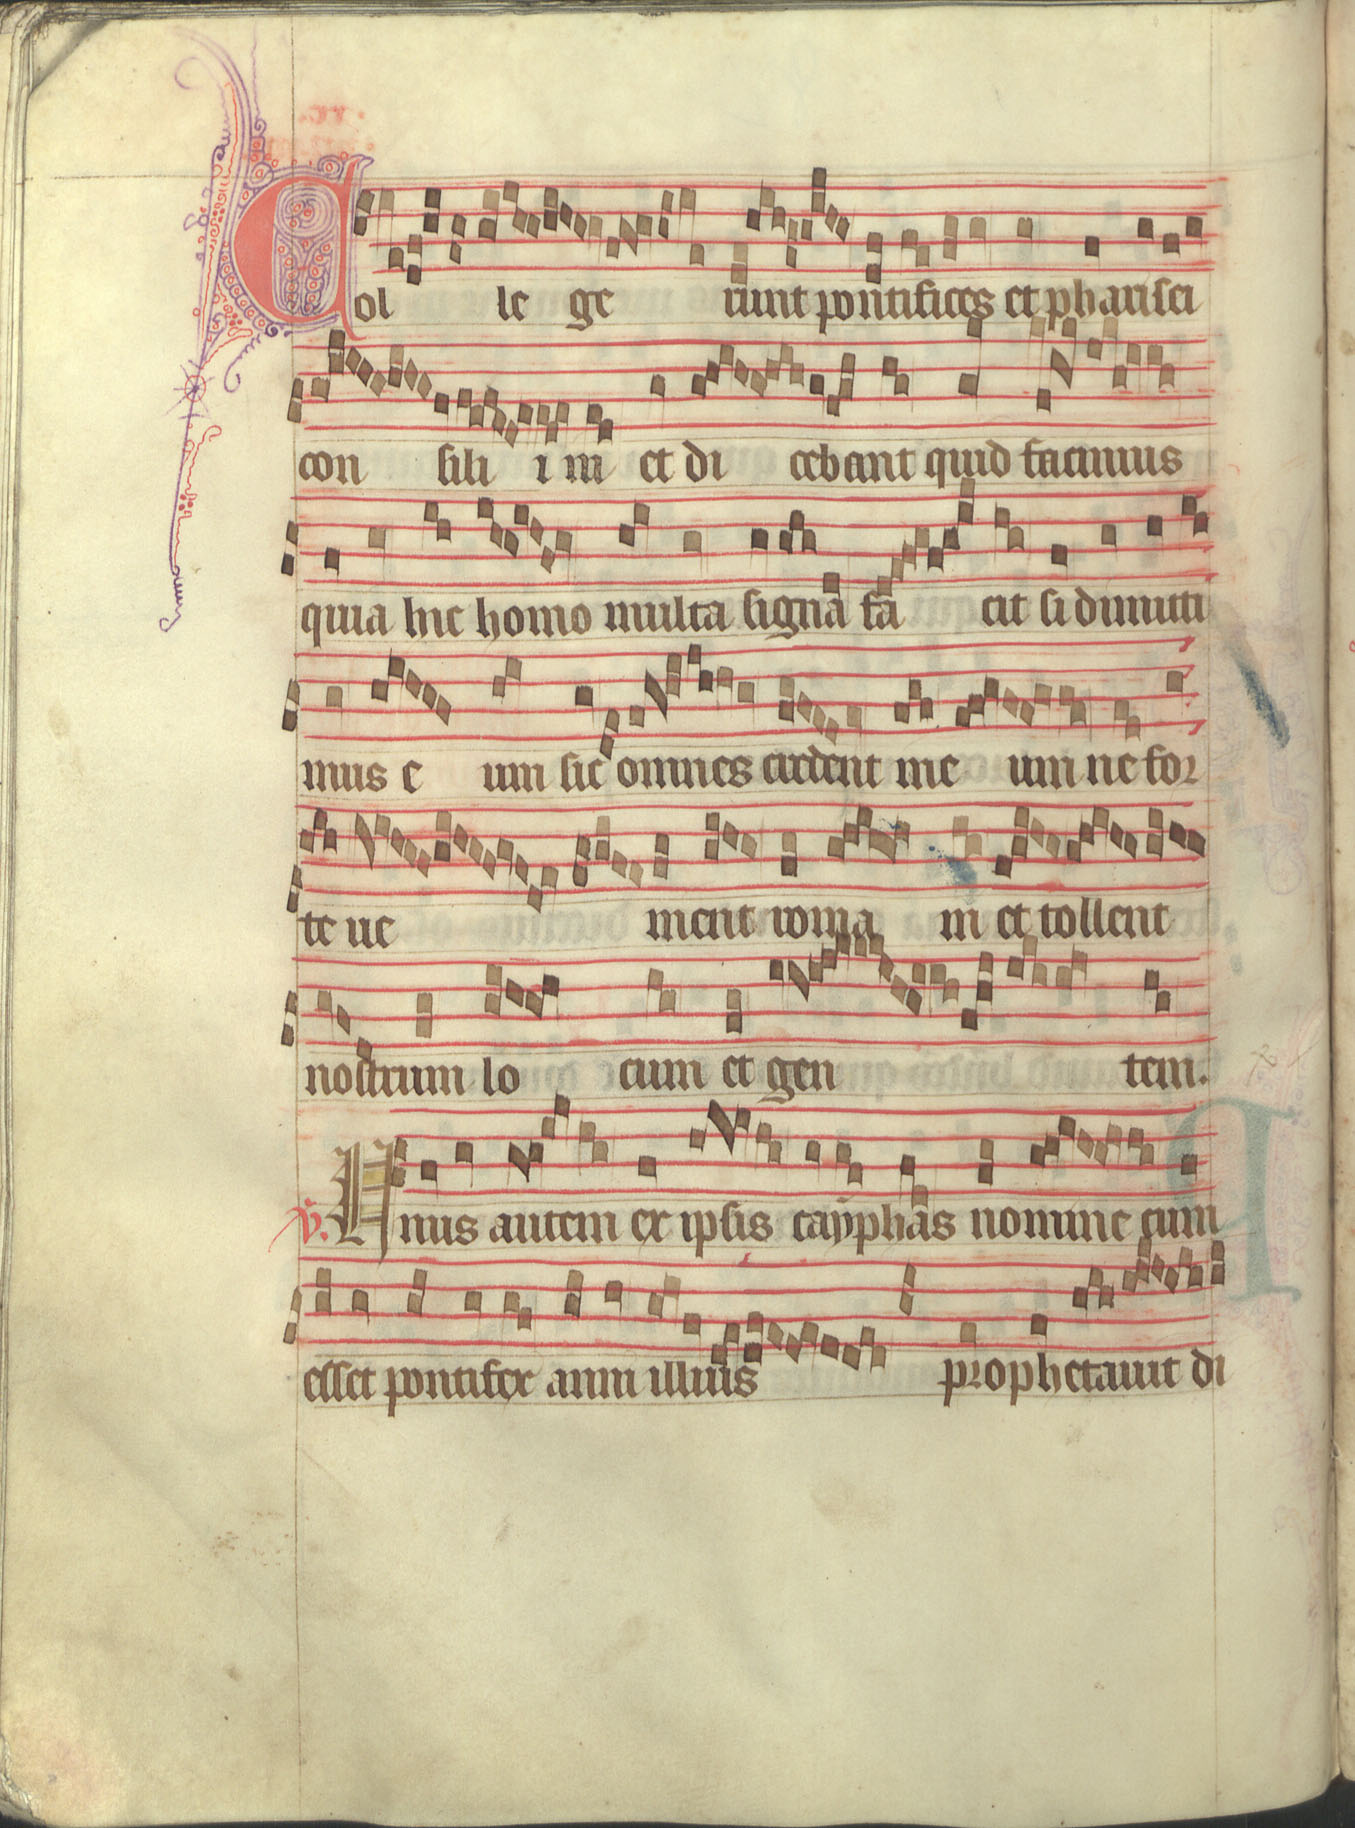 Col le ge runt pontifices et pharisei
con sili i m et di cebant quid facimus
quia hic homo multa signa fa cit si dimitti
mus e um sic omnes credent me um ne for
te ue nient roma ni et tollent
nostrum lo cum et gen tem.
v. Unus autem ex ipsis cayphas nomine cum
esset pontifex anni illius prophetauit di